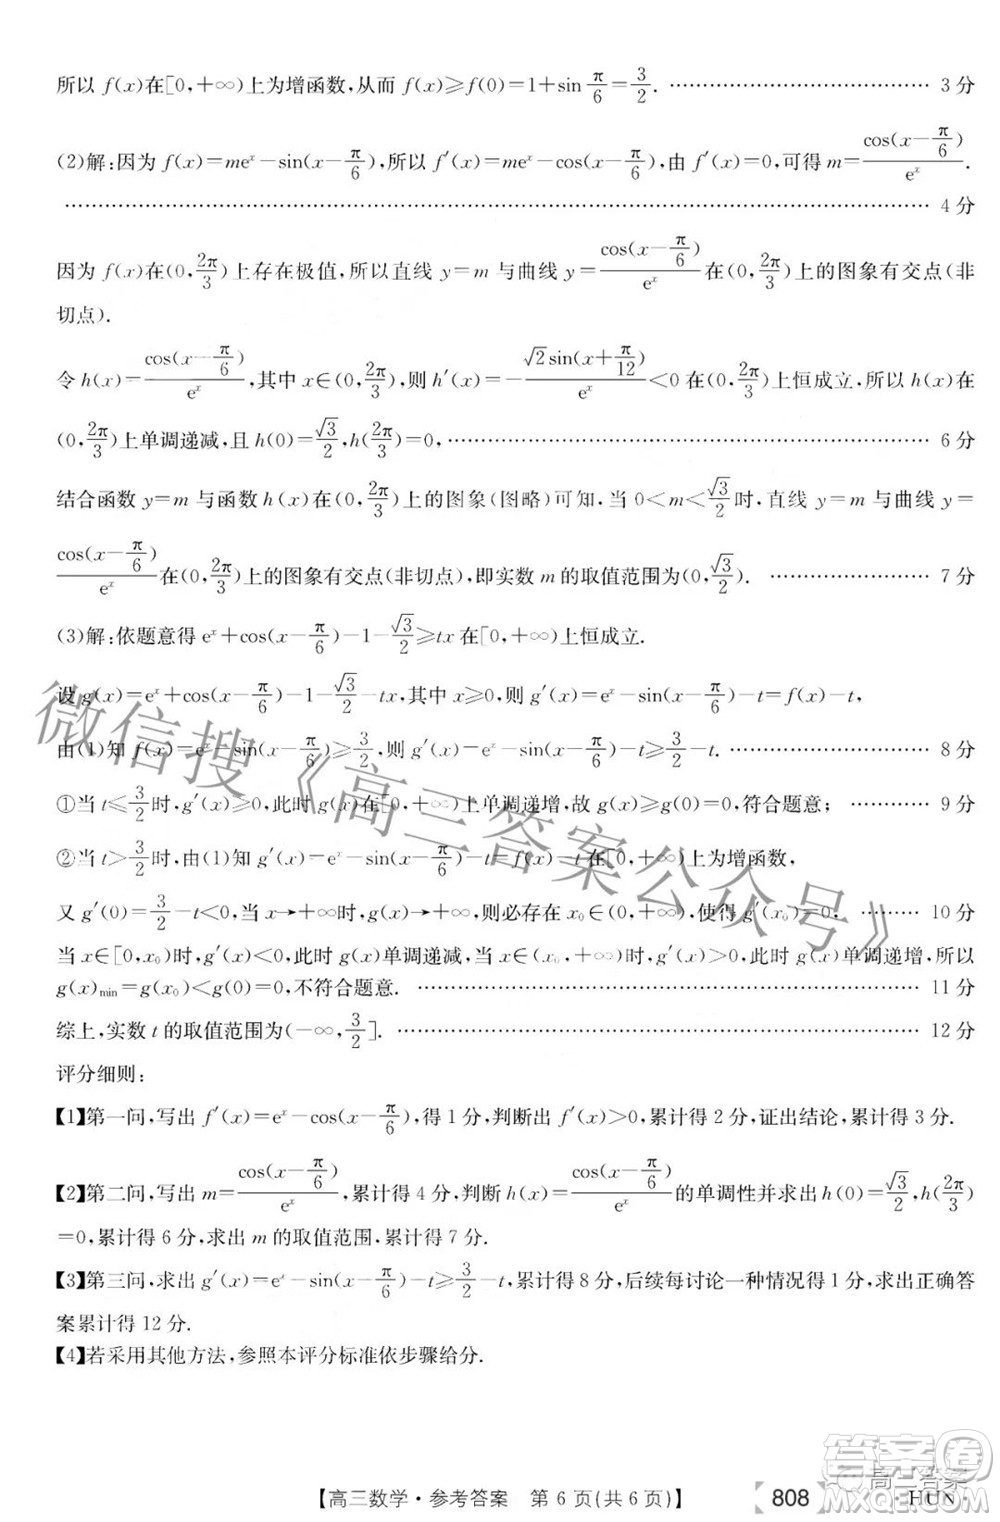 所以 f(x)在[0,+∞)上为增函数,从而 f(x)≥f(0)=1+sin π/6=3/2. ………… 3 分
(2)解:因为 f(x)=meˣ-sin(x-π/6),所以 f′(x)=meˣ-cos(x-π/6),由 f′(x)=0,可得 m=cos(x-π/6)/eˣ.
………… 4 分
因为 f(x)在(0,2π/3)上存在极值,所以直线 y=m 与曲线 y=cos(x-π/6)/eˣ 在(0,2π/3)上的图象有交点(非
切点).
令 h(x)=cos(x-π/6)/eˣ,其中 x∈(0,2π/3),则 h′(x)=-√2sin(x+π/12)/eˣ<0 在(0,2π/3)上恒成立,所以 h(x)在
(0,2π/3)上单调递减,且 h(0)=√3/2,h(2π/3)=0, ………… 6 分
结合函数 y=m 与函数 h(x)在(0,2π/3)上的图象(图略)可知,当 0<m<√3/2时,直线 y=m 与曲线 y=
cos(x-π/6)/eˣ 在(0,2π/3)上的图象有交点(非切点),即实数 m 的取值范围为(0,√3/2). ………… 7 分
(3)解:依题意得 eˣ+cos(x-π/6)-1-√3/2≥tx 在[0,+∞)上恒成立.
设 g(x)=eˣ+cos(x-π/6)-1-√3/2-tx,其中 x≥0,则 g′(x)=eˣ-sin(x-π/6)-t=f(x)-t,
由(1)知 f(x)=eˣ-sin(x-π/6)≥3/2,则 g′(x)=eˣ-sin(x-π/6)-t≥3/2-t. ………… 8 分
①当 t≤3/2时,g′(x)≥0,此时 g(x)在[0,+∞)上单调递增,故 g(x)≥g(0)=0,符合题意; ………… 9 分
②当 t>3/2时,由(1)知 g′(x)=eˣ-sin(x-π/6)-t=f(x)-t 在[0,+∞)上为增函数,
又 g′(0)=3/2-t<0,当 x→+∞时,g(x)→+∞,则必存在 x₀∈(0,+∞),使得 g′(x₀)=0, ……… 10 分
当 x∈[0,x₀)时,g′(x)<0,此时 g(x)单调递减;当 x∈(x₀,+∞)时,g′(x)>0,此时 g(x)单调递增,所以
g(x)min=g(x₀)<g(0)=0,不符合题意. ………… 11 分
综上,实数 t 的取值范围为(-∞,3/2]. ………… 12 分
评分细则:
【1】第一问,写出 f′(x)=eˣ-cos(x-π/6),得 1 分,判断出 f′(x)>0,累计得 2 分,证出结论,累计得 3 分.
【2】第二问,写出 m=cos(x-π/6)/eˣ,累计得 4 分,判断 h(x)=cos(x-π/6)/eˣ 的单调性并求出 h(0)=√3/2,h(2π/3)
=0,累计得 6 分,求出 m 的取值范围,累计得 7 分.
【3】第三问,求出 g′(x)=eˣ-sin(x-π/6)-t≥3/2-t,累计得 8 分,后续每讨论一种情况得 1 分,求出正确答
案累计得 12 分.
【4】若采用其他方法,参照本评分标准依步骤给分.
【高三数学·参考答案 第 6 页(共 6 页)】 808 ·HUN·
微信搜《高三答案公众号》
答案卷
高三答案
MXQE.COM